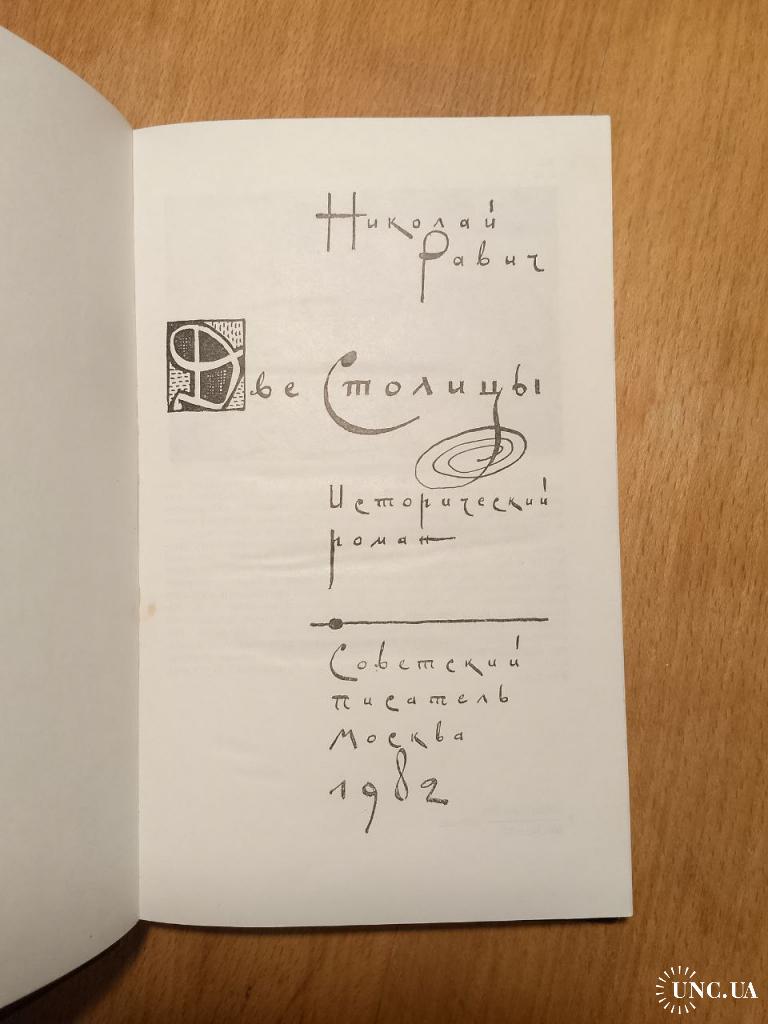 Николай
Равич
Две Столицы
Исторический
роман
Советский
писатель
Москва
1982
UNC.UA